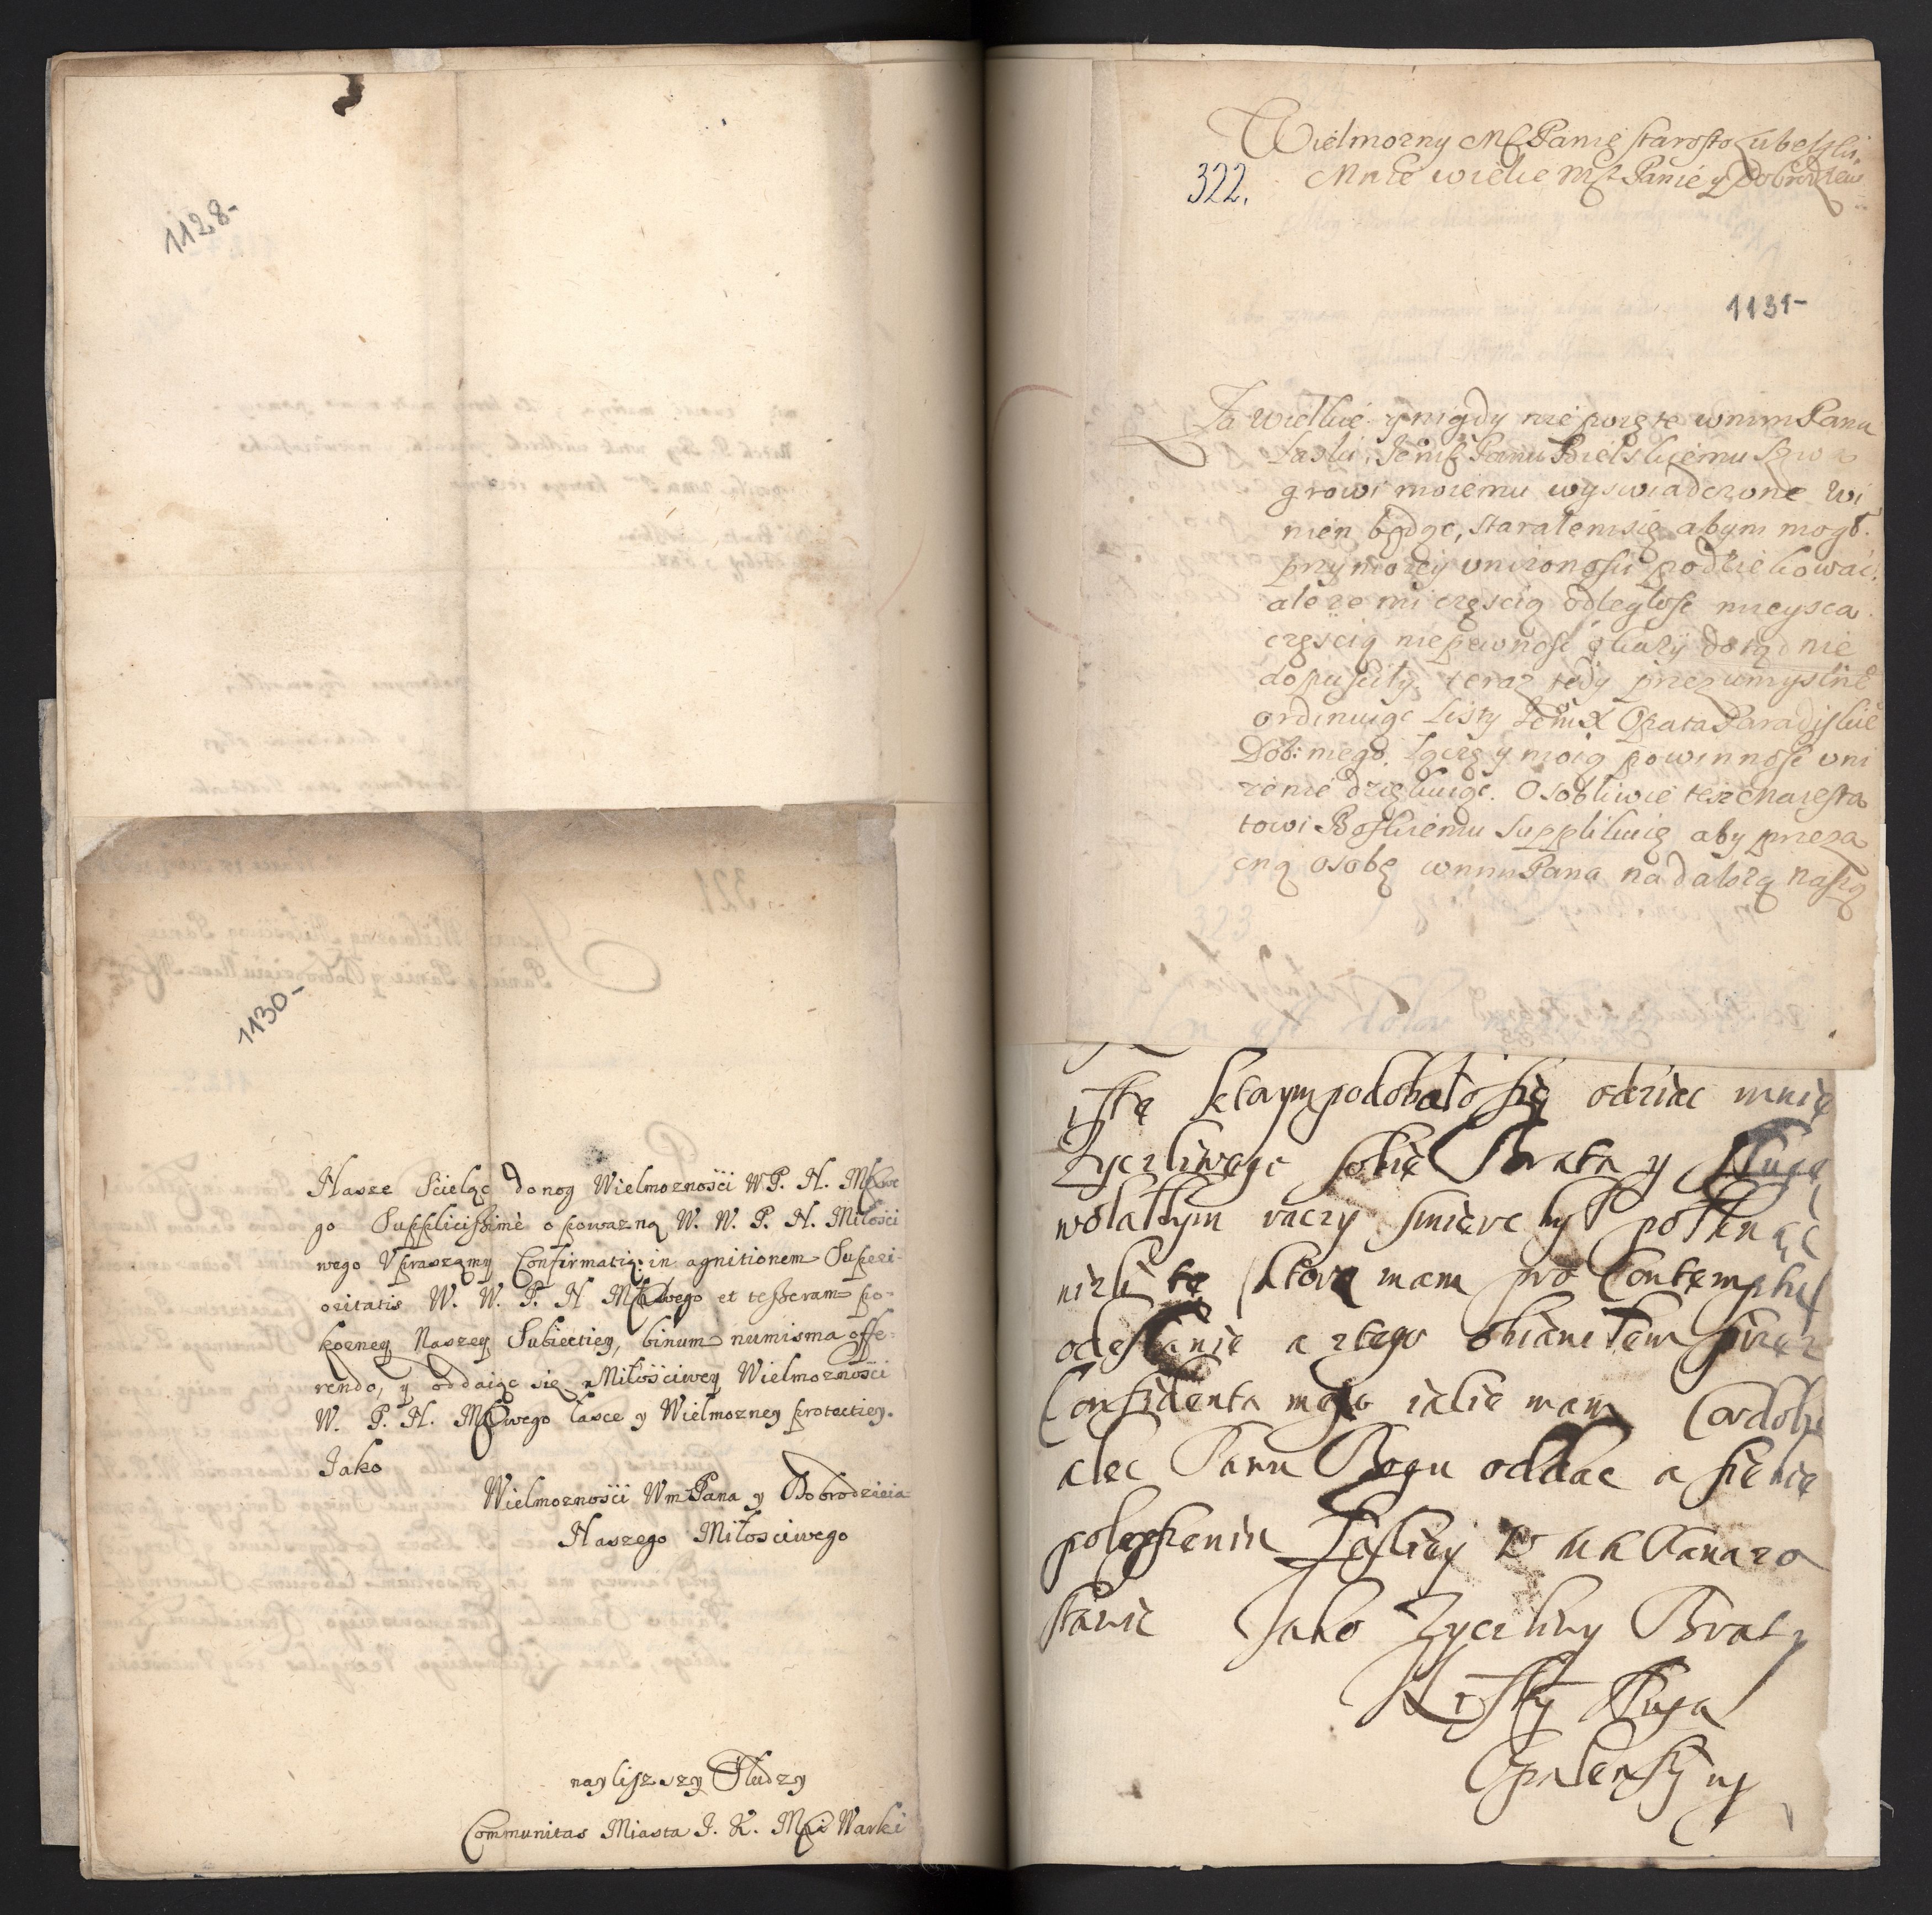 1128-
1130-
Nasze Scieląc do nog Wielmoznosci W P. N. Mściwe
go Supplicissimè o powazną W. W. P. N. Milości
wego Upraszamy Confirmatią: in agnitionem Superi-
oritatis W. W. P. N Mściwego et tesseram po-
korney Naszey Subiectiey, binum numisma offe-
rendo, y oddaiąc się Miłościwey Wielmoznosci
W. P. N. Mściwego łasce y Wielmozney protectiey.
Jako
Wielmozności Wm Pana y Dobrodzieia
Naszego Miłosciwego
nayliższszy Słudzy
Communitas Miasta J. K. Mści Warki
Wielmozny Mś Panie Starosto
322. Mnie wielce Mśc Panie y Dobrodzieiu
1131-
Za wielkie y nigdy nie poięte wmm Pana
Łaski, Jemś Panu Bielskiemu Szwa
growi moiemu wyswiadczone wi
nien będąc, starałem się abym mogł
przy moiey unizonosci podziękować,
ale ze mi częscią odległość mieysca
częścią niepewnosć okazÿ dotąd nie
dopuściły, teraz tedy przez umyslne
ordinuiąc Listy Jemś X Opata Paradiskie
Dob: mego, łączę y moią powinność uni
zenie dziękuiąc. Osobliwie tesz Maiesta
towi Boskiemu Supplikuię aby przeza
cną osobę wmm Pana na dalszą naszą
ktorym podobało się odziac mnie
Zyczliwego sobie Brata y Sługę
wolałbym raczy smierc był połknąć
nizli te ktorą mam pro Contemptu
odesłanie a ztego obianiłem przez
Confidenta mego iakie mam Cordoli
alec Panu Bogu oddac a siebie
polepszeniu Łaskiey W M M Pana zo
stawic Jako Zyczliwy Brat y
Sługa